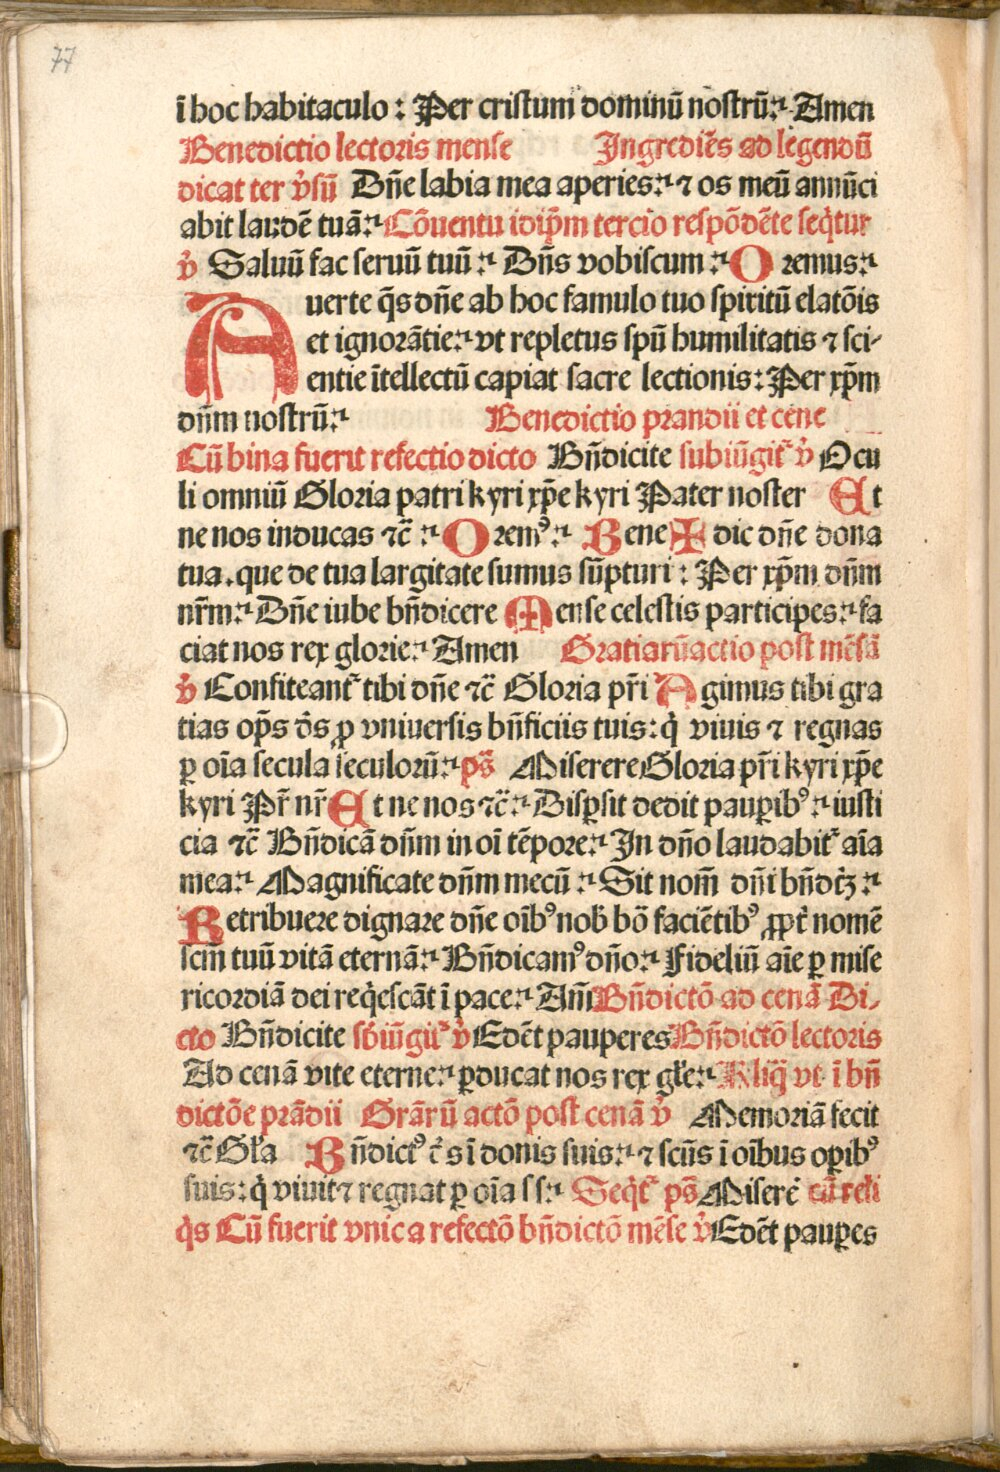 77
ī hoc habitaculo : Per cristum dominū nostrū:· Amen
Benedictio lectoris mense Ingrediēs ad legendū
dicat ter v̓sū Dn̄e labia mea aperies:· ⁊ os meū annūci
abit laudē tuā:· Cōuentu idip̄m tercio respōdēte seq̄tur
v̓ Saluū fac seruū tuū :· Dn̄s vobiscum :· Oremus:·
Auerte q̄s dn̄e ab hoc famulo tuo spiritū elatōis
et ignorātie:· vt repletus spū humilitatis ⁊ sci-
entie ītellectū capiat sacre lectionis: Per xp̄m
dn̄m nostrū:· Benedictio prandii et cene
Cū bina fuerit refectio dicto Bn̄dicite subiūgit᷑ v̓ Ocu
li omniū Gloria patri kyri xp̄e kyri Pater noster Et
ne nos inducas ⁊c̄ :· Oremꝰ:· Bene✠dic dn̄e dona
tua.que de tua largitate sumus sūpturi : Per xp̄m dn̄m
nr̄m:· Dn̄e iube bn̄dicere Mense celestis participes:· fa
ciat nos rex glorie:· Amen Gratiarūactio post mēsā
v̓ Confiteant᷑ tibi dn̄e ⁊c̄ Gloria pr̄i Agimus tibi gra
tias op̄s d̄s ꝓ vniuersis bn̄ficiis tuis: q̇ viuis ⁊ regnas
ꝑ oīa secula seculorū:· ps̄ Miserere Gloria pr̄i kyri xp̄e
kyri Pr̄ nr̄ Et ne nos ⁊c̄:· Disꝑsit dedit pauꝑibꝰ:· iusti
cia ⁊c̄ Bn̄dicā dn̄m in oī tēpore:· In dn̄o laudabit᷑ aīa
mea:· Magnificate dn̄m mecū :· Sit nom̄ dn̄i bn̄dc̄ꝫ :·
Retribuere dignare dn̄e oībꝰ nob̄ bō faciētibꝰ ꝓpt̄ nomē
scm̄ tuū vitā eternā:· Bn̄dicamꝰ dn̄o:· Fideliū aīe ꝑ mise
ricordiā dei req̇escāt ī pace:· Am̄ Bn̄dictō ad cenā Di-
cto Bn̄dicite sb̄iūgit᷑ v̓ Edēt pauperes Bn̄dictō lectoris
Ad cenā vite eterne:· ꝑducat nos rex gl̄e:· Rliq̄ vt ī bn̄
dictōe prādii Grāꝝū actō post cenā v̓ Memoriā fecit
⁊c̄ Gl̄a Bn̄dictꝰ ē s ī donis suis:· ⁊ scūs ī oībus oꝑibꝰ
suis: q̇ viuit ⁊ regnat ꝑ oīa s s:· Seq̄t᷑ ps̄ Miserē cū reli
q̇s Cū fuerit vnica refectō bn̄dictō mēse v̓ Edēt pauꝑes